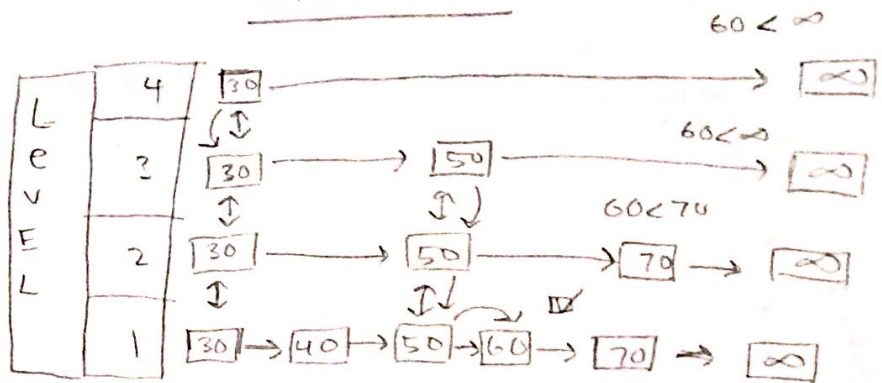 60 < ∞
LEVEL
4 30 ∞
60 < ∞
3 30 50 ∞
60 < 70
2 30 50 70 ∞
1 30 40 50 60 70 ∞